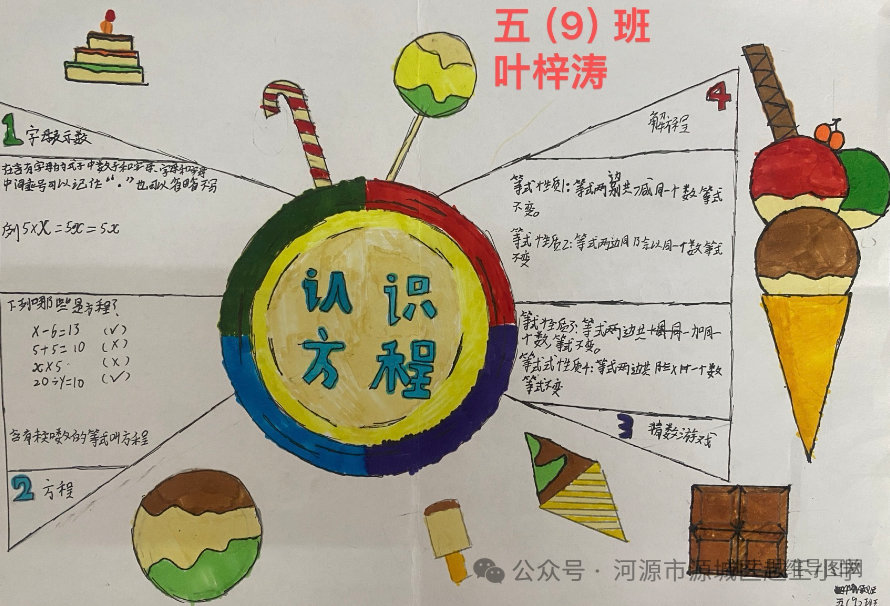 五（9）班
叶梓涛
认识
方程
1 字母表示数
在含有字母的式子中数字和字母、字母和字母
中间乘号可以记住“·”也可以省略不写
例5×X=5x=5x
下列哪些是方程？
x-6=13 (√)
5+5=10 (×)
x×5 (×)
20÷y=10 (√)
含有未知数的等式叫方程
2 方程
4
解方程
等式性质1：等式两边共减同一个数等式
不变。
等式性质2：等式两边同除以同一个数等式
不变
等式性质3：等式两边共同加同一
个数，等式不变。
等式性质4：等式两边共同×同一个数
等式不变
3 猜数游戏
公众号·河源市源城区
五(9)班